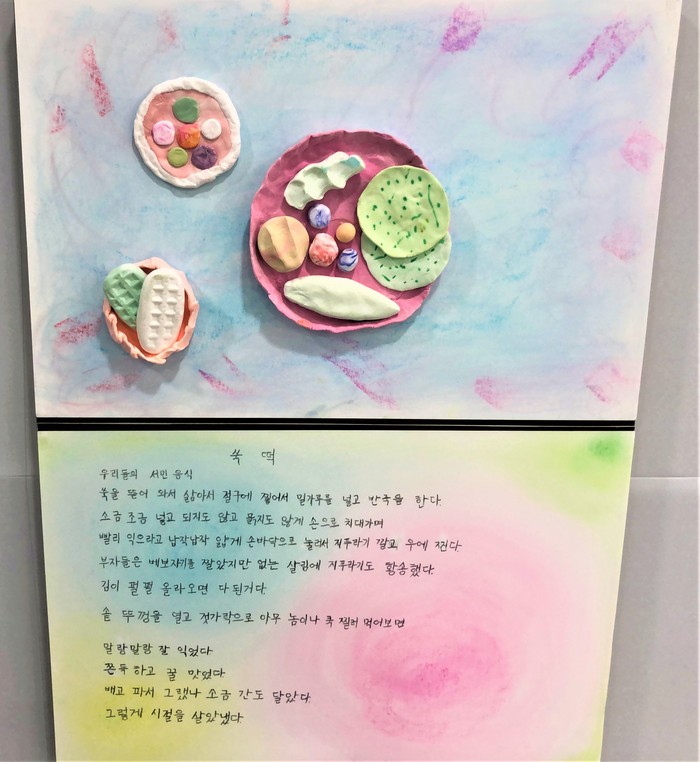 쑥 떡
우리들의 서민 음식
쑥을 뜯어 와서 삶아서 절구에 찧어서 밀가루를 넣고 반죽을 한다.
소금 조금 넣고 되지도 않고 묽지도 않게 손으로 치대가며
빨리 익으라고 납작납작 얇게 손바닥으로 눌러서 지푸라기 깔고 우에 찐다.
부자들은 베보자기를 깔았지만 없는 살림에 지푸라기도 황송했다.
김이 펄펄 올라오면 다 된거다.
솥 뚜껑을 열고 젓가락으로 아무 놈이나 쿡 찔러 먹어보면
말랑말랑 잘 익었다
쫀득하고 꿀 맛였다
배고 파서 그랬나 소금 간도 달았다.
그렇게 시절을 살아냈다.